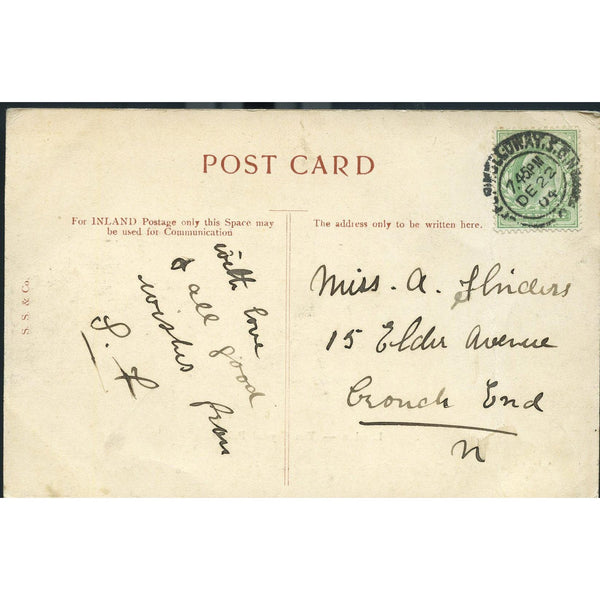 POST CARD
For INLAND Postage only this Space may
be used for Communication
The address only to be written here.
S. S. & Co.
with love
& all good
wishes from
S. F
Miss. A. Flinders
15 Elder Avenue
Crouch End
N
HOLLOWAY.S.O
7.45PM
DE 22
04